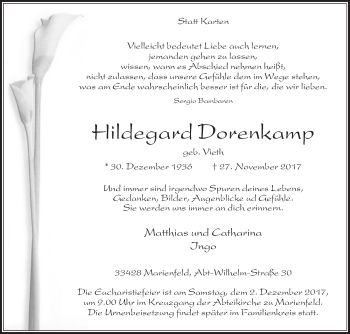 Statt Karten
Vielleicht bedeutet Liebe auch lernen,
jemanden gehen zu lassen,
wissen, wann es Abschied nehmen heißt,
nicht zulassen, dass unsere Gefühle dem im Wege stehen,
was am Ende wahrscheinlich besser ist für die, die wir lieben.
Sergio Bambaren
Hildegard Dorenkamp
geb. Vieth
* 30. Dezember 1936 † 27. November 2017
Und immer sind irgendwo Spuren deines Lebens,
Gedanken, Bilder, Augenblicke ud Gefühle.
Sie werden uns immer an dich erinnern.
Matthias und Catharina
Ingo
33428 Marienfeld, Abt-Wilhelm-Straße 30
Die Eucharistiefeier ist am Samstag, dem 2. Dezember 2017,
um 9.00 Uhr im Kreuzgang der Abteikirche zu Marienfeld.
Die Urnenbeisetzung findet später im Familienkreis statt.